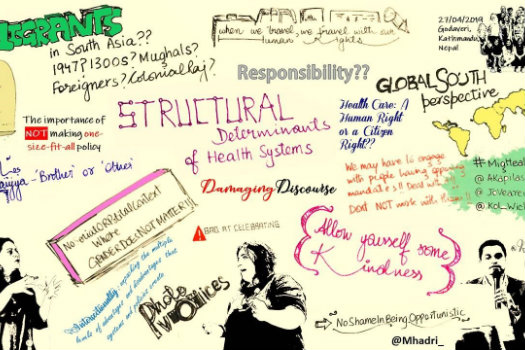 MIGRANTS
in South Asia??
1947? 1300s? Mughals?
Foreigners? Colonial Raj?
when we travel, we travel with our
Human Rights
27/04/2019
Godaveri,
Kathmandu,
Nepal
Responsibility??
GLOBAL SOUTH
perspective
The importance of
NOT making one-
size-fit-all policy
STRUCTURAL
Determinants
of Health Systems
Health Care: A
Human Right
or a Citizen
Right??
'Brother' or 'Other'
Damaging Discourse
We may have to engage
with people having opposing
mandates!! Deal with
Don't NOT work with them!!
#MigHeal
@Akapilas
@Joveare
@Kol_Wic
No social or political context
Where
GENDER DOES NOT MATTER!!!
BAD AT CELEBRATING
Allow yourself some
Kindness
Intersectionality: the multiple
levels of advantages and disadvantages that
systems and policies create
Photo
VOICES
No Shame In Being Opportunistic
@Mhadri_